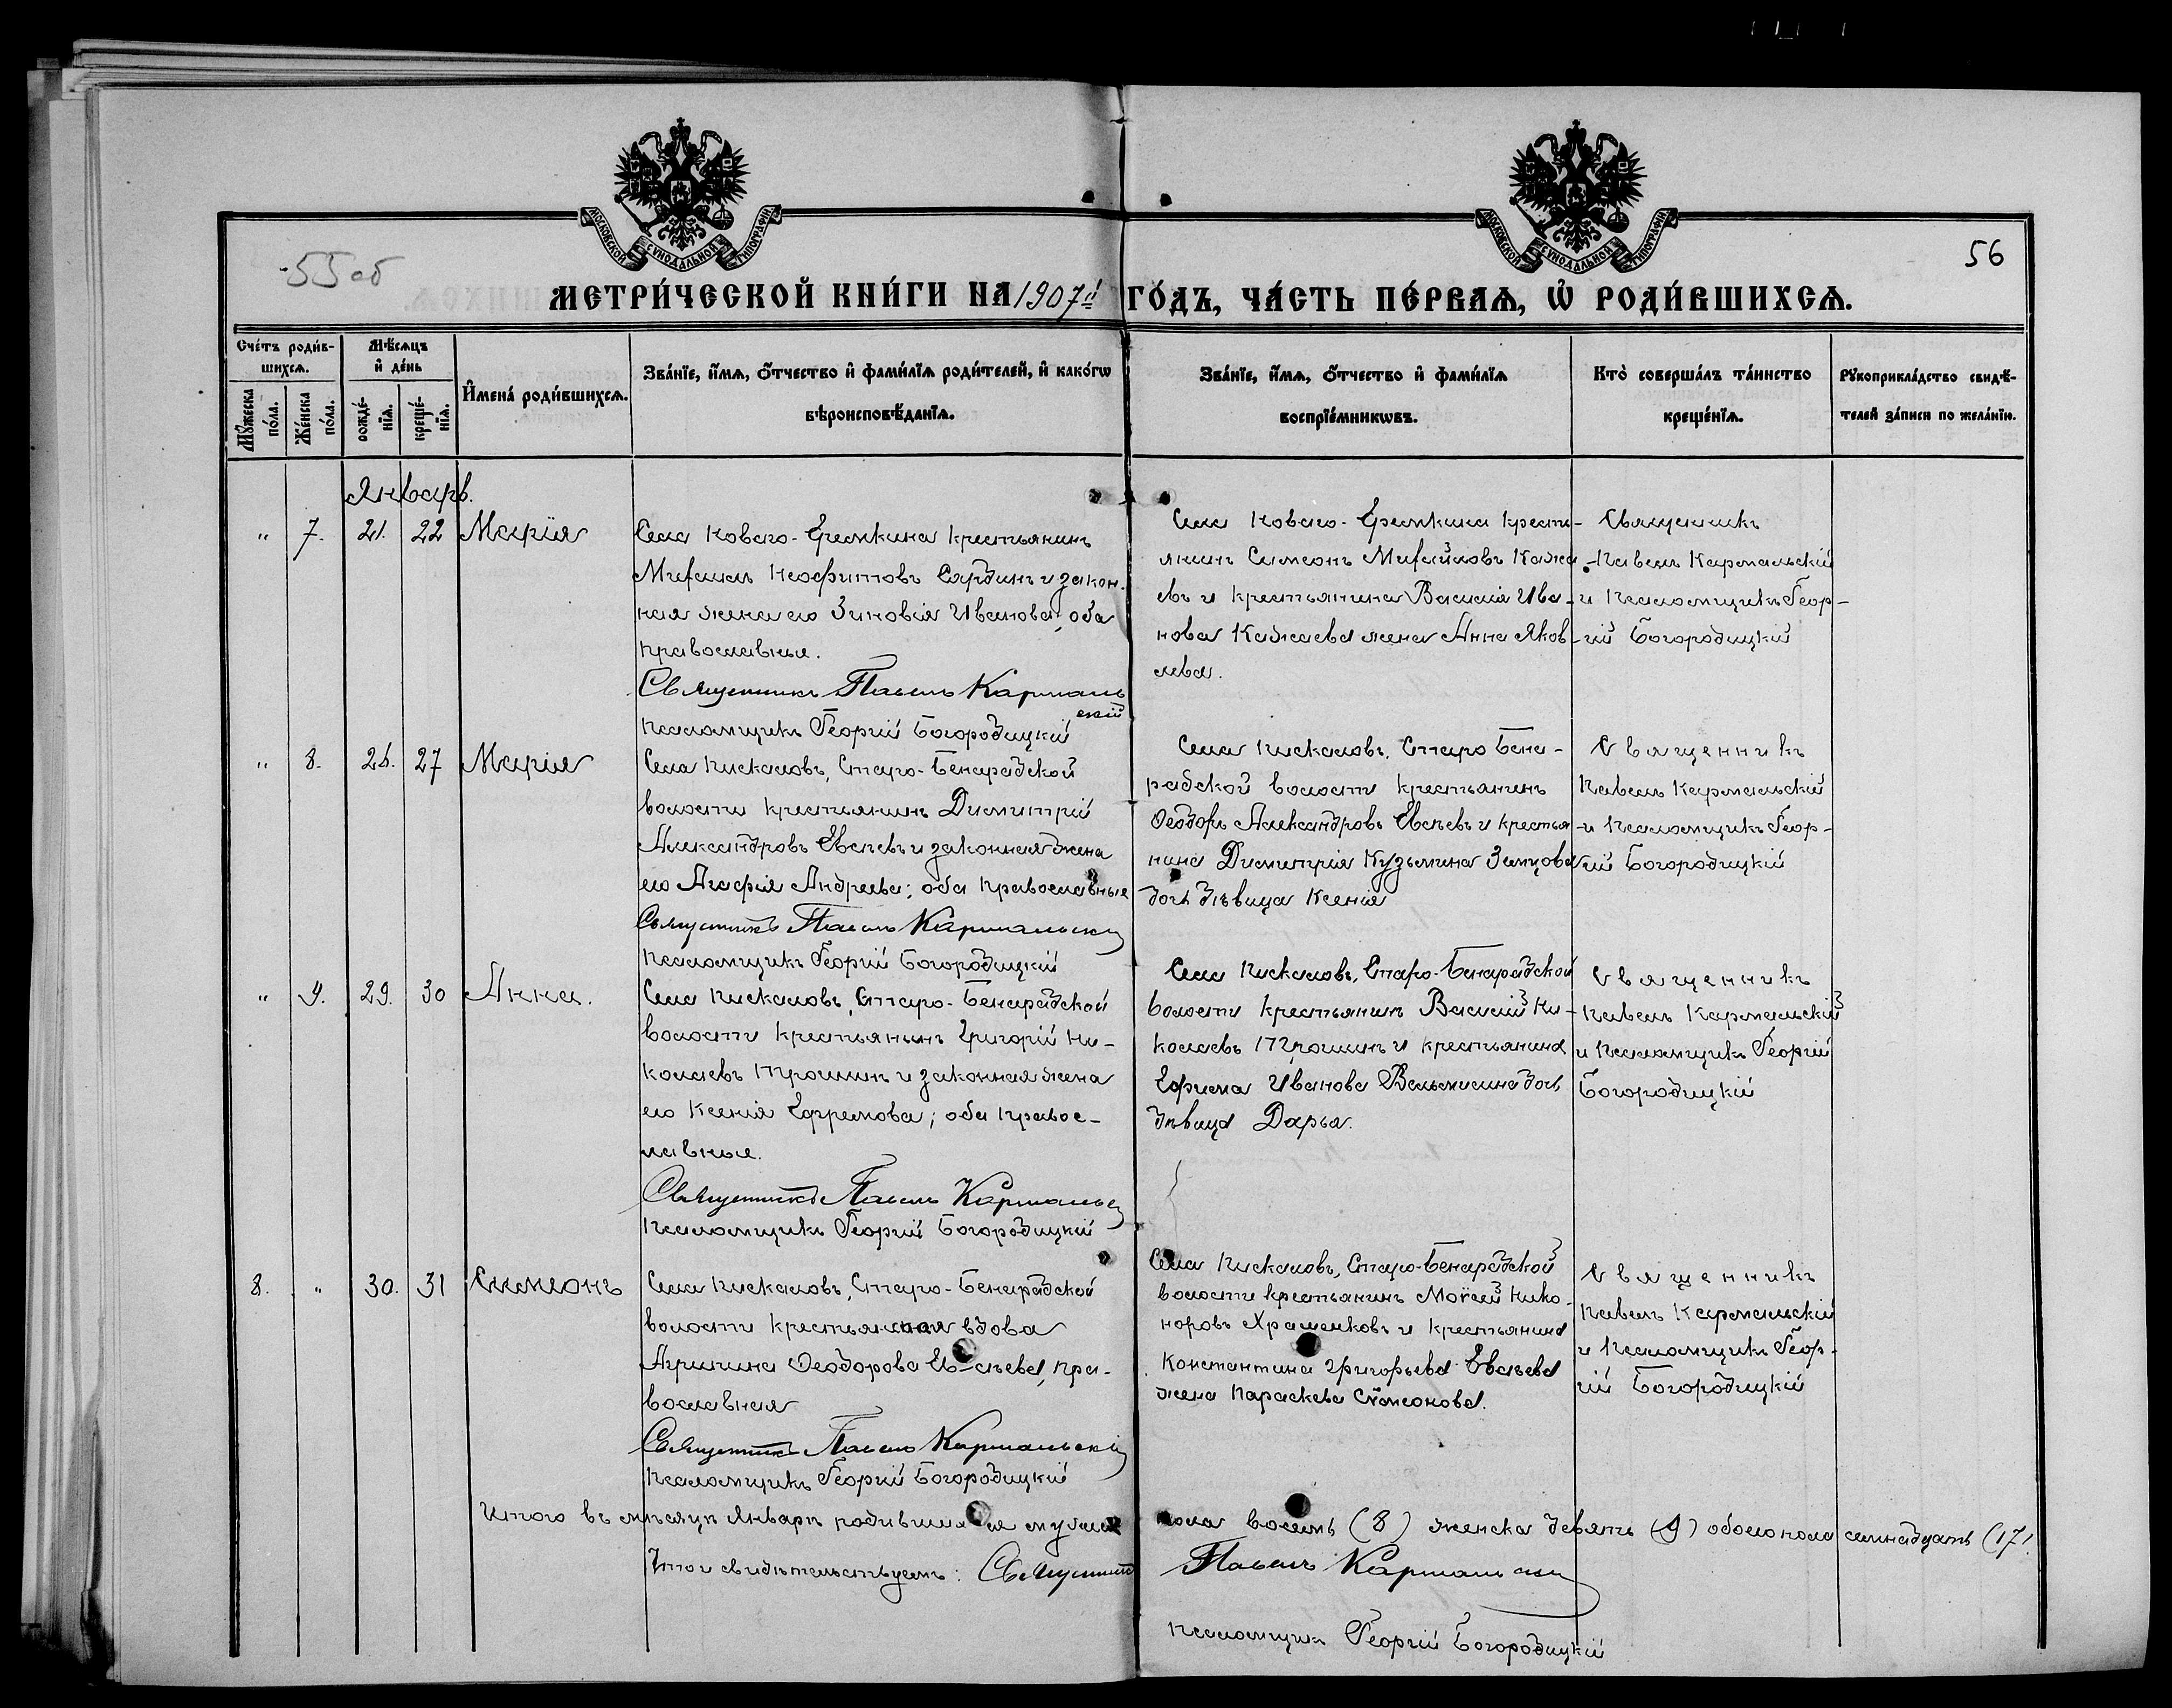 55 об
56
МОСКОВСКОЙ СѴНОДАЛЬНОЙ ТИПОГРАФІИ
МОСКОВСКОЙ СѴНОДАЛЬНОЙ ТИПОГРАФІИ
МЕТРИ́ЧЕСКОЙ КНИ́ГИ НА 1907й ГО́ДЪ, ЧА́СТЬ ПЕ́РВАѦ, Ѽ РОДИ́ВШИХСѦ.
Сче́тъ роди́в-
шихсѧ.
Мꙋ́жеска по́ла.
Же́нска по́ла.
Мѣ́сѧцъ
и҆ де́нь
рожде́-
нїѧ.
креще́-
нїѧ.
И҆мена̀ роди́вшихсѧ.
Зва́нїе, и҆́мѧ, ѻ҆́тчество и҆ фами́лїѧ роди́телей, и҆ како́гѡ
вѣроисповѣ́данїѧ.
Зва́нїе, и҆́мѧ, ѻ҆́тчество и҆ фами́лїѧ
воспрїе́мникѡвъ.
Кто̀ соверша́лъ та́инство
креще́нїѧ.
Рꙋкоприкла́дство свидѣ́-
телей за́писи по жела́нїю.
Январь.
" 7. 21. 22 Марія
Села Новаго-Еремкина крестьянинъ
Михаилъ Неофитовъ Сардинъ и закон-
ная жена его Зиновія Иванова, оба
православные.
Священникъ Павелъ Кармаль
скій
Псаломщикъ Георгій Богородицкій
Села Новаго-Еремкина кресть-
янинъ Симеонъ Михайловъ Кажа
евъ и крестьянина Василія Ива-
нова Кажаева жена Анна Яков-
лева.
Священникъ
Павелъ Кармальскій
и Псаломщикъ Геор-
гій Богородицкій
" 8. 26. 27 Марія
Села Пискаловъ, Старо-Бинарадской
волости крестьянинъ Димитрій
Александровъ Евсѣевъ и законная жена
его Агафія Андреева; оба православные
Священникъ Павелъ Кармальскій
Псаломщикъ Георгій Богородицкій
Села Пискаловъ, Старо Бина-
радской волости крестьянинъ
Ѳеодоръ Александровъ Евсѣевъ и крестья-
нина Димитрія Кузьмина Зимцова
дочь дѣвица Ксенія
Священникъ
Павелъ Кармальскій
и Псаломщикъ Геор-
гій Богородицкій
" 9. 29. 30 Анна.
Села Пискаловъ, Старо-Бинарадской
волости крестьянинъ Григорій Ни-
колаевъ Трошинъ и законная жена
его Ксенія Ефремова; оба правос-
лавные.
Священникъ Павелъ Кармальс
Псаломщикъ Георгій Богородицкій
Села Пискаловъ, Старо-Бинарадской
волости крестьянинъ Василій Ни-
колаевъ Трошинъ и крестьянина
Ефрема Иванова Вельмисина дочь
дѣвица Дарья.
Священникъ
Павелъ Кармальскій
и Псаломщикъ Георгій
Богородицкій
8. " 30. 31 Симеонъ
Села Пискаловъ, Старо-Бинарадской
волости крестьянская вдова
Агрипина Ѳеодорова Евсѣева, пра-
вославная
Священникъ Павелъ Кармальскій
Псаломщикъ Георгій Богородицкій
Села Пискаловъ, Старо-Бинарадской
волости крестьянинъ Моѵсей Нико-
норовъ Храменковъ и крестьянина
Константина Григорьева Евсѣева
жена Параскева Симеонова.
Священникъ
Павелъ Кармальскій
и Псаломщикъ Геор-
гій Богородицкій
Итого въ мѣсяцѣ Январѣ родившихся мужска пола восемь (8) женска девять (9) обоего пола семнадцать (17).
Въ томъ свидѣтельствуемъ: Священникъ Павелъ Кармальскій
Псаломщикъ Георгій Богородицкій